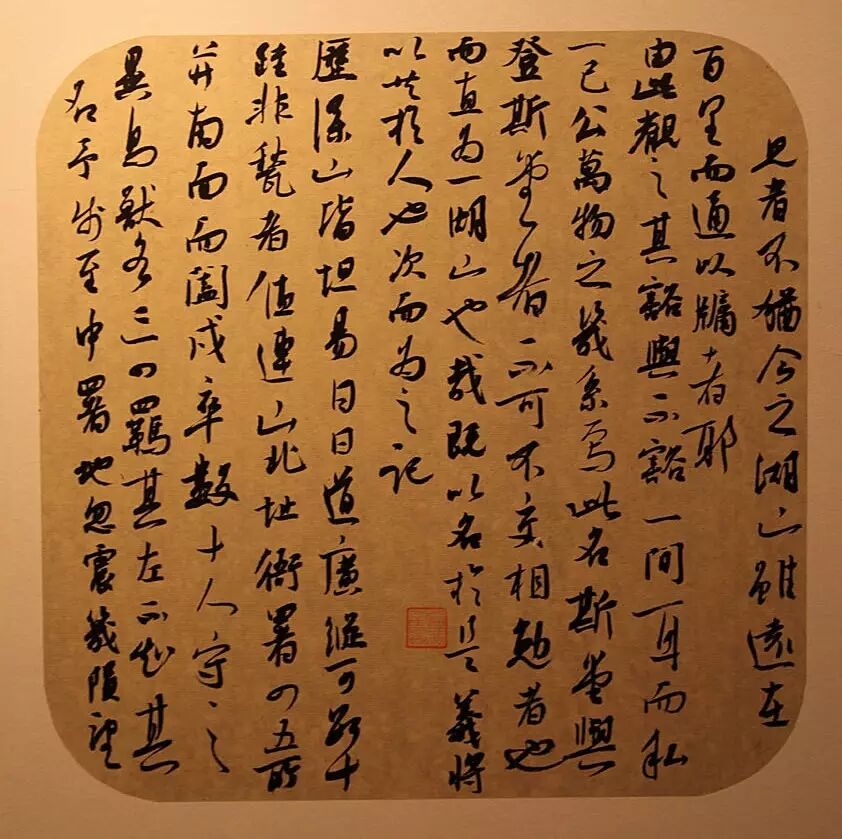 見者不猶今之湖山雖遠在
百里而通以牖者耶
由此觀之其豁與不豁一間耳而私
一己公萬物之幾系焉此名斯堂與
登斯堂者不可不交相勉者也
而直為一湖山也哉既以名於是義將
以共於人也次而為之記
歷深山皆坦易日日道廣縱可數十
陸非甃者值連山北址衙署四五所
並南面而闔戍卒數十人守之
異鳥獸各三四四羈其左不知其
名予時至中署地忽震幾隕望